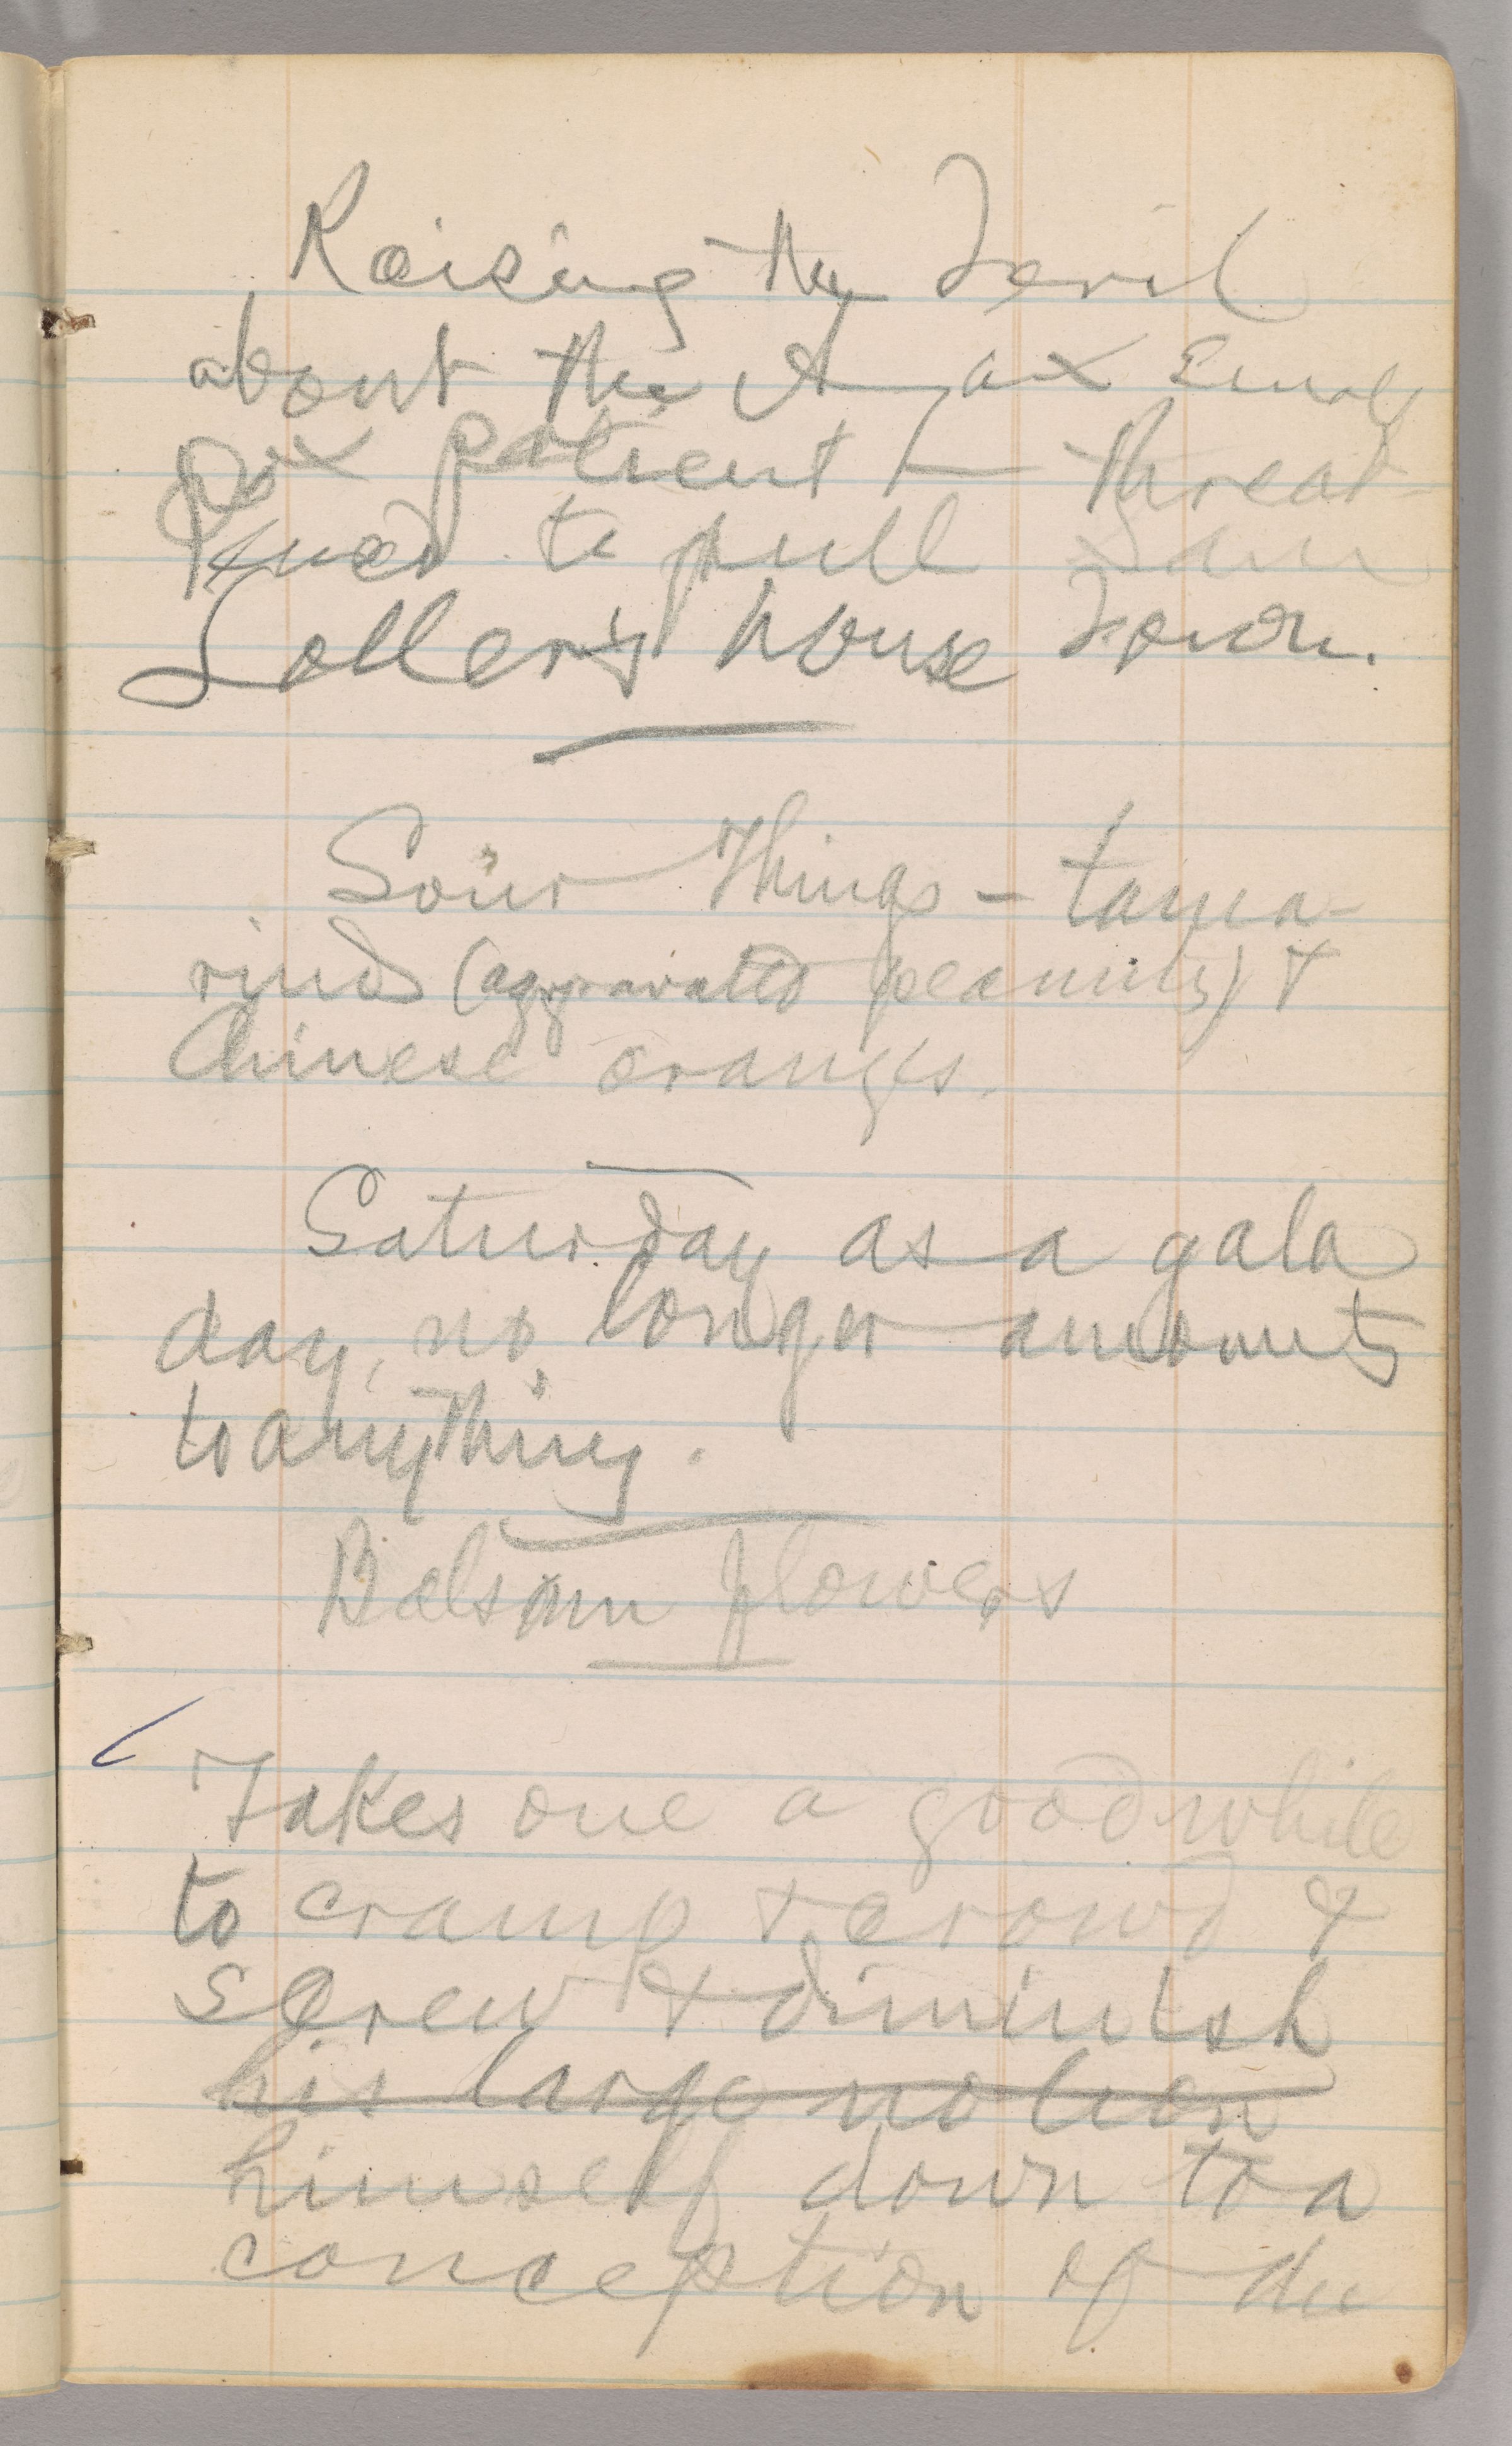 Raising the Devil
about the Ajax Small
pox patient — threat-
ened to pull Sam
Loller's house down.
Sour Things – tama-
rinds (aggravated peanuts) &
Chinese oranges.
Saturday as a gala
day, no longer amounts
to anything.
Balsam flowers
Takes one a good while
to cramp & crowd &
screw & diminish
his large notion
himself down to a
conception of the